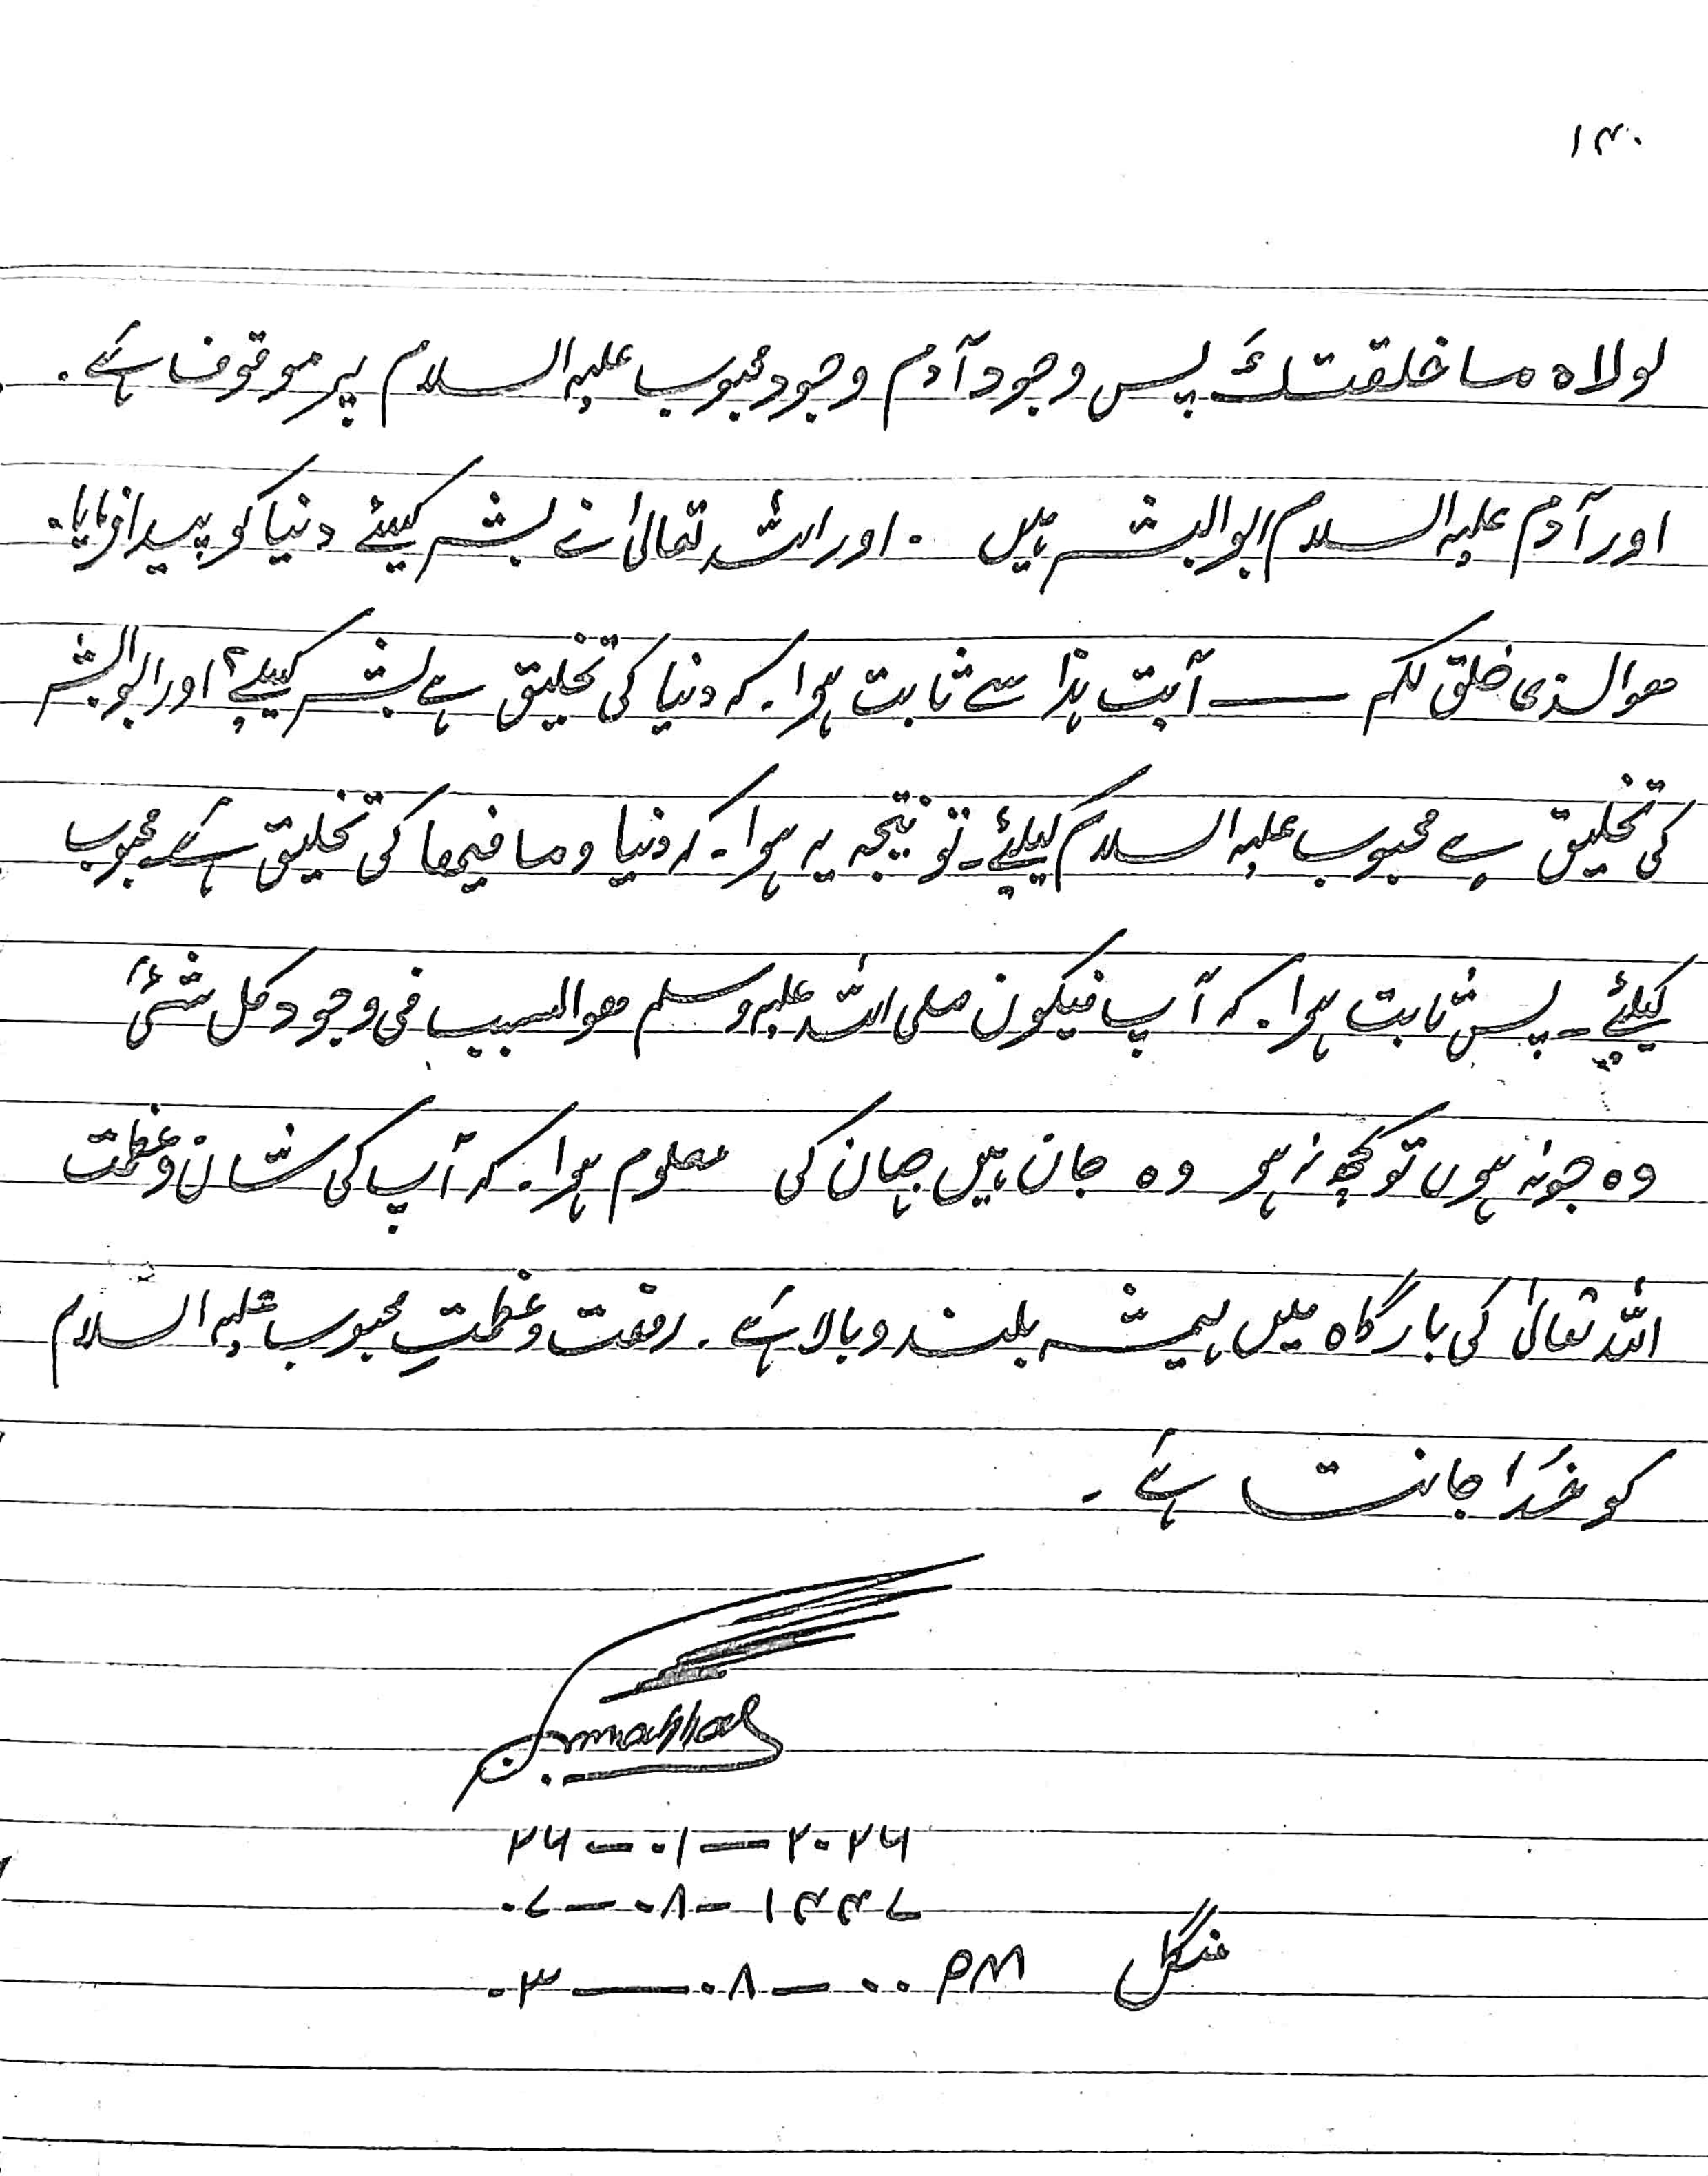 ۱۴۰
لولاہ ما خلقتك پس وجود آدم وجود محبوب علیہ السلام پر موقوف ہے۔
اور آدم علیہ السلام ابوالبشر ہیں ۔ اور اللہ تعالیٰ نے بشر کیلئے دنیا کو پیدا فرمایا۔
ھوالذی خلق لکم ــــ آیت ہذا سے ثابت ہوا۔ کہ دنیا کی تخلیق ہے بشر کیلئے، اور ابوالبشر
کی تخلیق ہے محبوب علیہ السلام کیلئے۔ تو نتیجہ یہ ہوا۔ کہ دنیا و ما فیھا کی تخلیق ہے محبوب
کیلئے۔ پس ثابت ہوا۔ کہ آپ فیکون صلی اللہ علیہ وسلم ھوالسبب فی وجود کل شئ
وہ جو نہ ہوں تو کچھ نہ ہو وہ جان ہیں جہان کی معلوم ہوا۔ کہ آپ کی شان و عظمت
اللہ تعالیٰ کی بارگاہ میں ہمیشہ بلند و بالا ہے۔ رفعت و عظمتِ محبوب علیہ السلام
کو خُدا جانتا ہے۔
۲۶ – ۰۱ – ۲۰۲۶
۰۷ – ۰۸ – ۱۴۴۷
۰۳ – ۰۸ – ۰۰ PM منگل